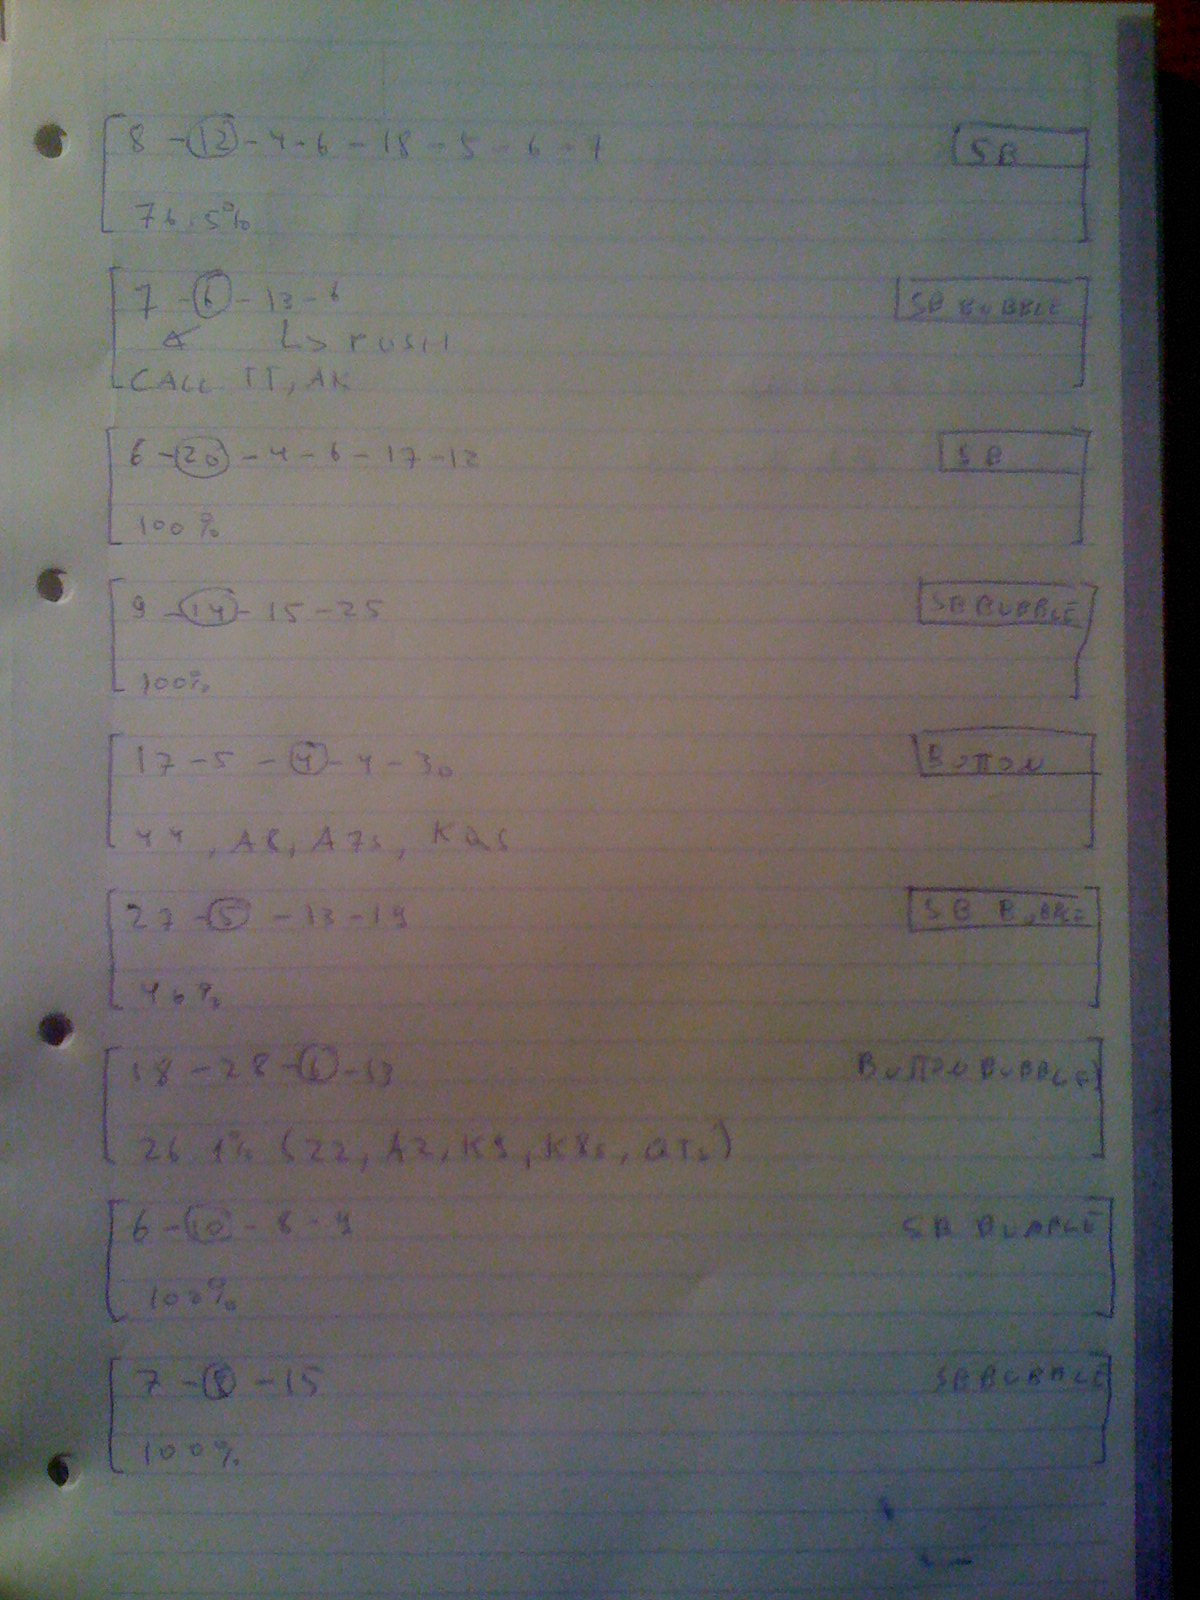 8 - 12 - 4 - 6 - 18 - 5 - 6 - 7 SB
76.5%
7 - 6 - 13 - 6 SB BUBBLE
↳ PUSH
CALL TT, AK
6 - 20 - 4 - 6 - 17 - 12 SB
100%
9 - 14 - 15 - 25 SB BUBBLE
100%
17 - 5 - 4 - 4 - 30 BUTTON
44, A8, A7s, KQs
27 - 5 - 13 - 19 SB BUBBLE
46%
18 - 28 - 6 - 13 BUTTON BUBBLE
26.1% (22, A2, K9, K8s, QTs)
6 - 10 - 8 - 9 SB BUBBLE
100%
7 - 8 - 15 SB BUBBLE
100%